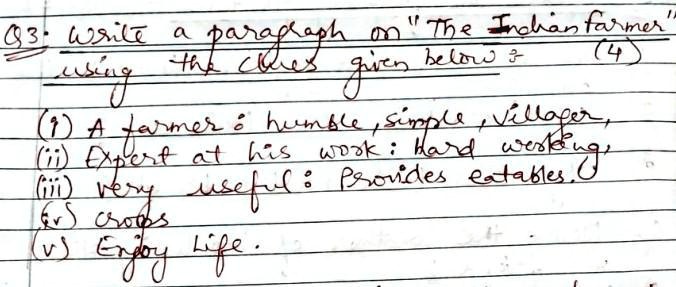 Q3. Write a paragraph on "The Indian farmer"
using the clues given below : (4)
(i) A farmer : humble, simple, villager,
(ii) Expert at his work : Hard working,
(iii) very useful : Provides eatables.
(iv) crops
(v) Enjoy Life.